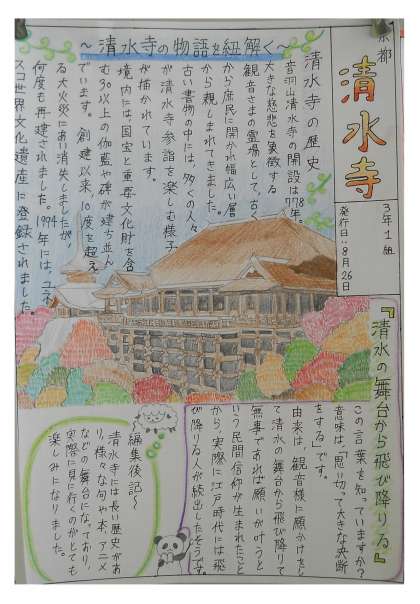 京都
清水寺
3年1組
発行日:8月26日
〜清水寺の物語を紐解く〜
清水寺の歴史
音羽山清水寺の開設は778年。
大きな慈悲を象徴する
観音さまの霊場として、古く
から庶民に開かれ幅広い層
から親しまれてきました。
古い書物の中には、多くの人々
が清水寺参詣を楽しむ様子
が描かれています。
境内には、国宝と重要文化財を含
む30以上の伽藍や碑が建ち並ん
でいます。創建以来、10度を超え
る大火災にあい消失しましたが、
何度も再建されました。1994年には、ユネ
スコ世界文化遺産に登録されました。
『清水の舞台から飛び降りる』
この言葉を知っていますか?
意味は、「思い切って大きな決断
をする」です。
由来は、観音様に願かけをし
て清水の舞台から飛び降りて
無事であれば願いが叶うと
いう民間信仰が生まれたこと
から、実際に江戸時代には飛
び降りる人が続出したそうです。
〜編集後記〜
清水寺には長い歴史があ
り、様々な句や本、アニメ
などの舞台になっており、
実際に見に行くのがとても
楽しみになりました。